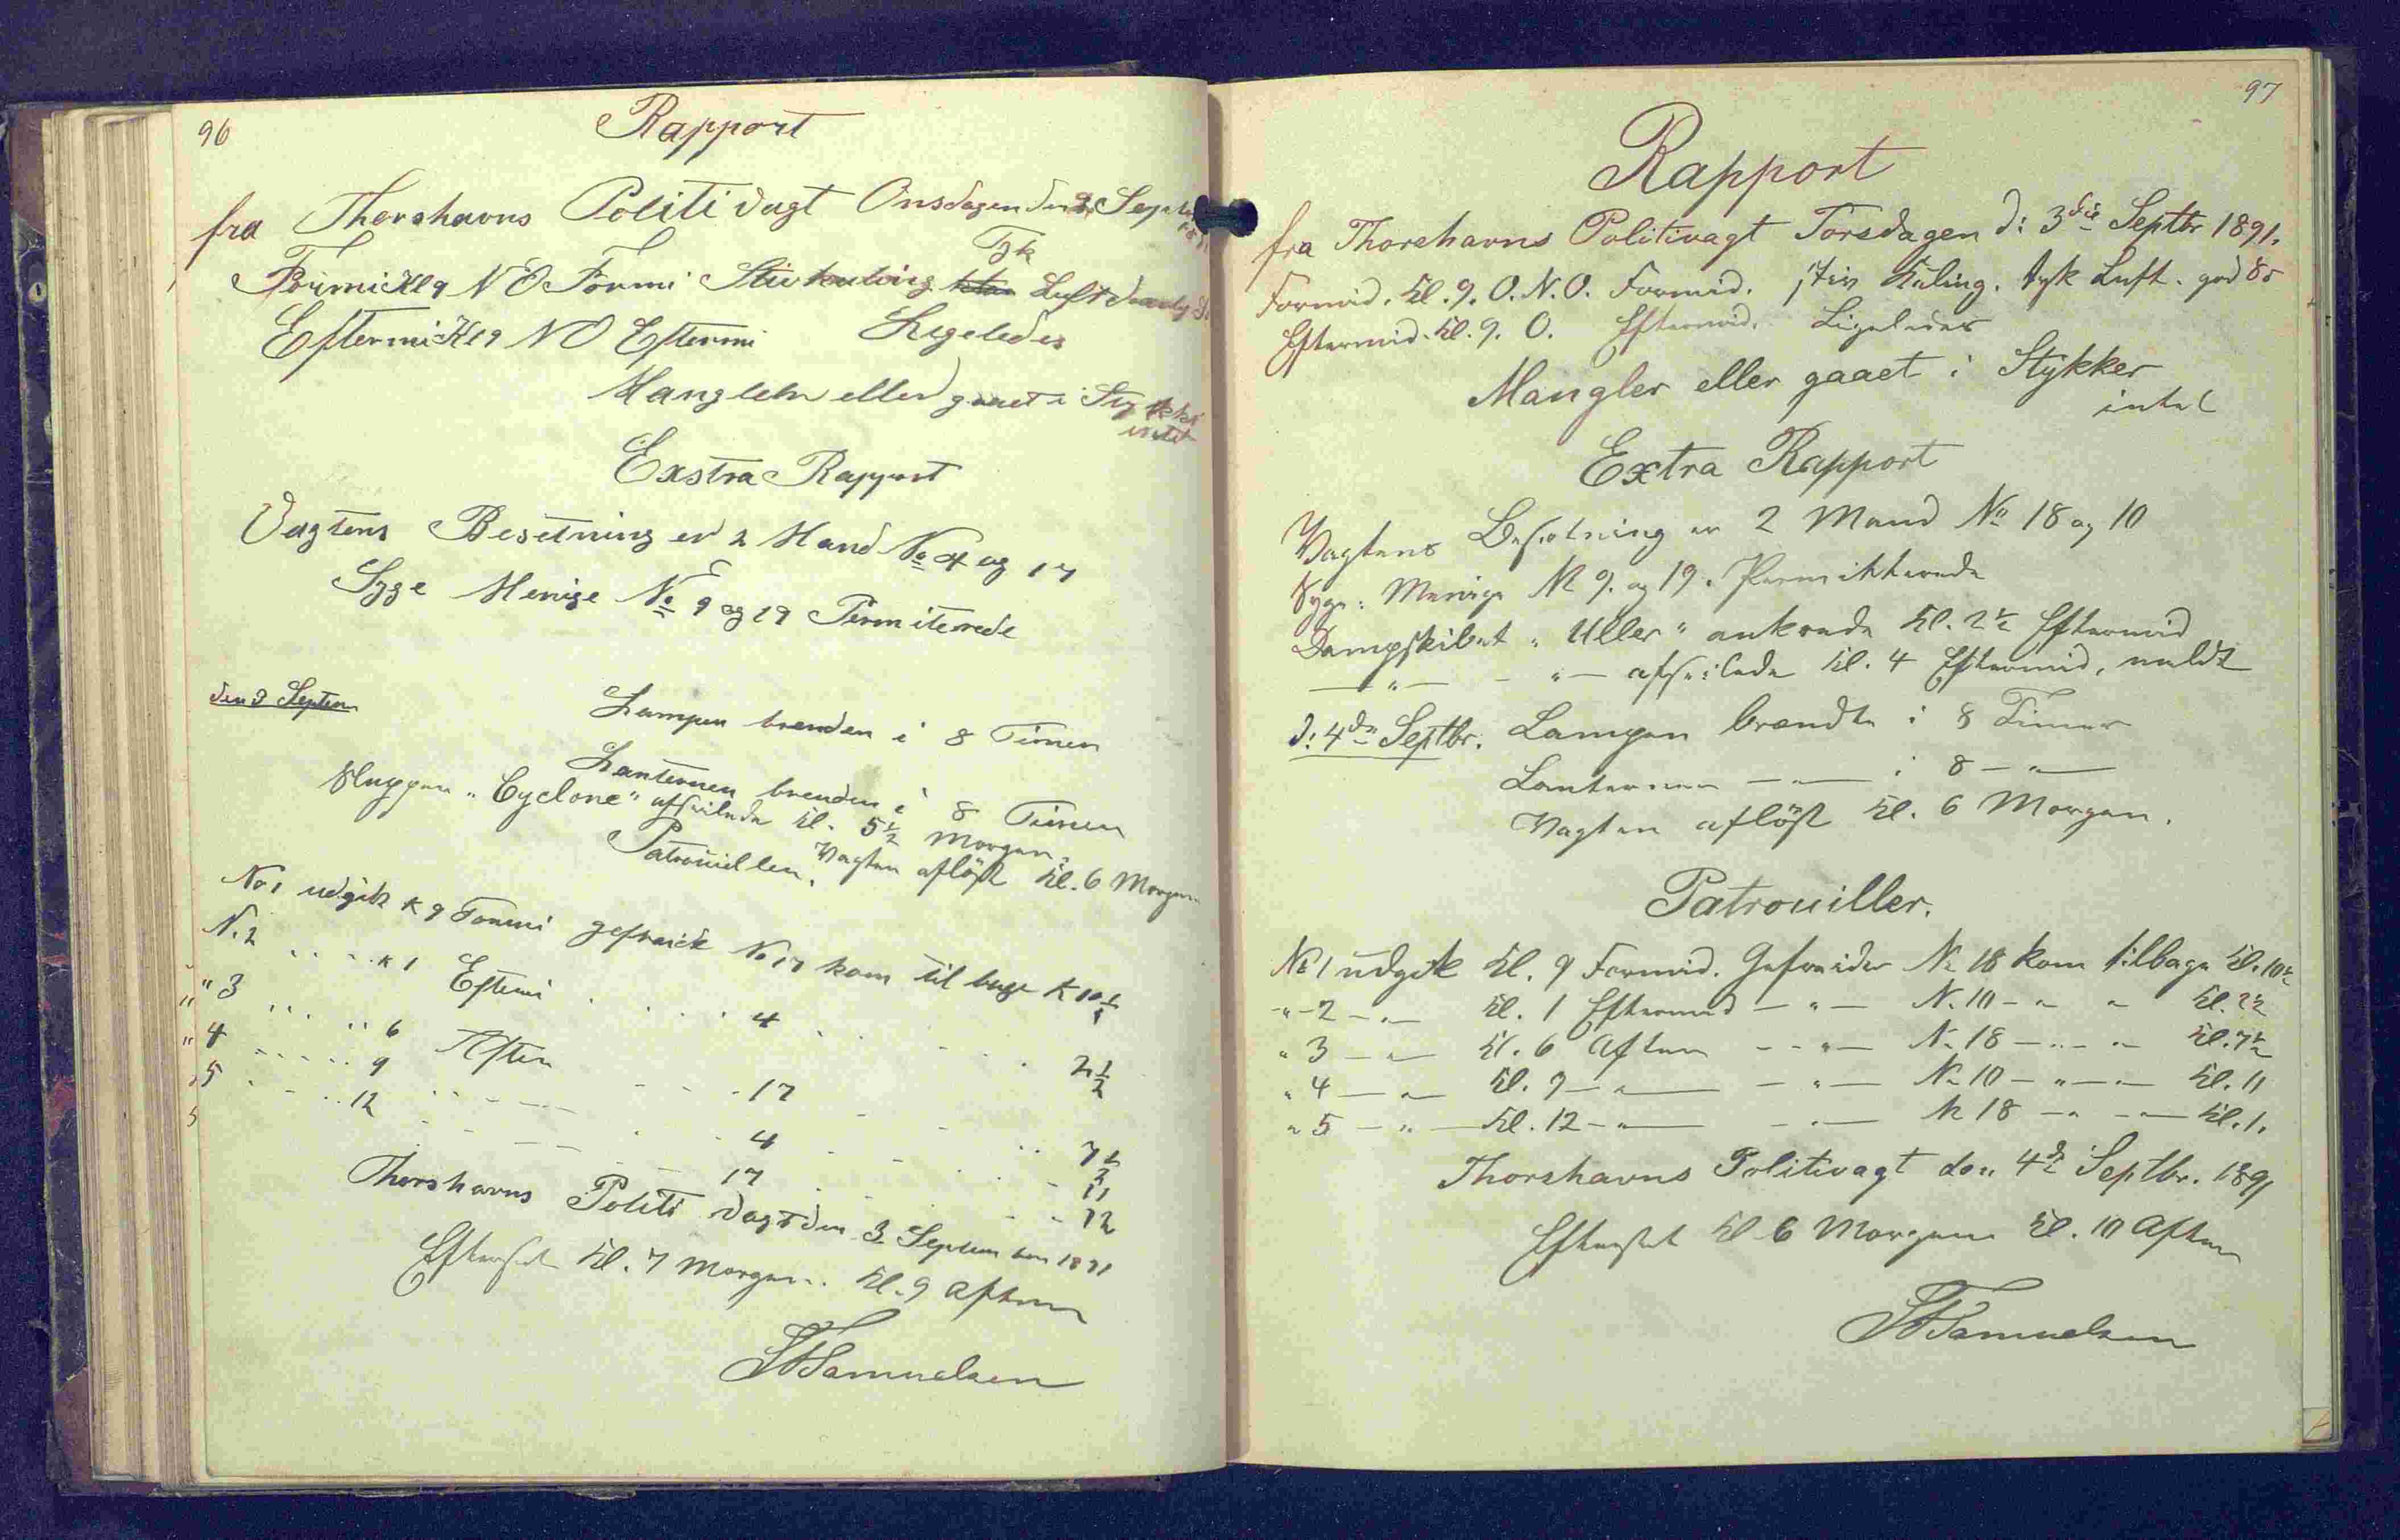 96
Rapport
fra Thorshavns Politi Vagt Onsdagen den 2 Septe
Tyk
Formi Kl 9 NO Formi Stiv kuling klar Luft
Eftermi Kl 9 NO Eftermi Ligeledes
Mangleler eller gaaet i Stykker
intet
Exstra Rapport
Vagtens Besetning er 2 Mand No 4 og 17
Syge Menige No 9 og 19 Permiterede
den 3 Septem
Lampen brenden i 8 Timer
Lanternen brenden i 8 Timer
Sluppen "Cyclone" afseilede Kl. 5½ Morgen.
Vagten aflöst Kl. 6 Morgen
Patrouillen.
No 1 udgik K 9 Formi gefreide No 17 kom til bage K 10½
N. 2 " " K 1 Eftemi " " 4 " " 2½
" 3 " " 6 Aften " " 17 " " 7½
" 4 " " 9 " " 4 " " 11
" 5 " " 12 " " 17 " " 12
Thorshavns Politi Vagt den 3 Septem ber 1891
Efterset Kl. 7 Morgen. Kl. 9 Aften
Samuelsen
97
Rapport
fra Thorshavns Politivagt Torsdagen d: 3die Septbr 1891.
Formid. Kl. 9. O.N.O. Formid. stiv Kuling. tyk Luft. god
Eftermid. Kl. 9. O. Eftermid. Ligeledes
Mangler eller gaaet i Stykker
intet
Extra Rapport
Vagtens Besætning er 2 Mand No 18 og 10
Syge: Menige No 9. og 19. Permitterede
Dampskibet "Uller" ankrede Kl. 2½ Eftermid
— " — - " — afseilede Kl. 4 Eftermid. meldt
d: 4de Septbr. Lampen brændte i 8 Timer
Lanternen — " — i 8 — " —
Vagten aflöst Kl. 6 Morgen.
Patrouiller.
No 1 udgik Kl. 9 Formid. Gefreider No 18 kom tilbage Kl. 10½
- " - 2 - " - Kl. 1 Eftermid — " — No 10 - " " Kl. 2½
" 3 — " — Kl. 6 Aften — " — No 18 — " — " Kl. 7½
" 4 — " — Kl. 9 — " — — " — No 10 — " — " — Kl. 11
" 5 — " — Kl. 12 — " — — " — No 18 — " — " — Kl. 1.
Thorshavns Politivagt den 4de Septbr. 1891
Efterset Kl 6 Morgen Kl. 10 Aften
Samuelsen